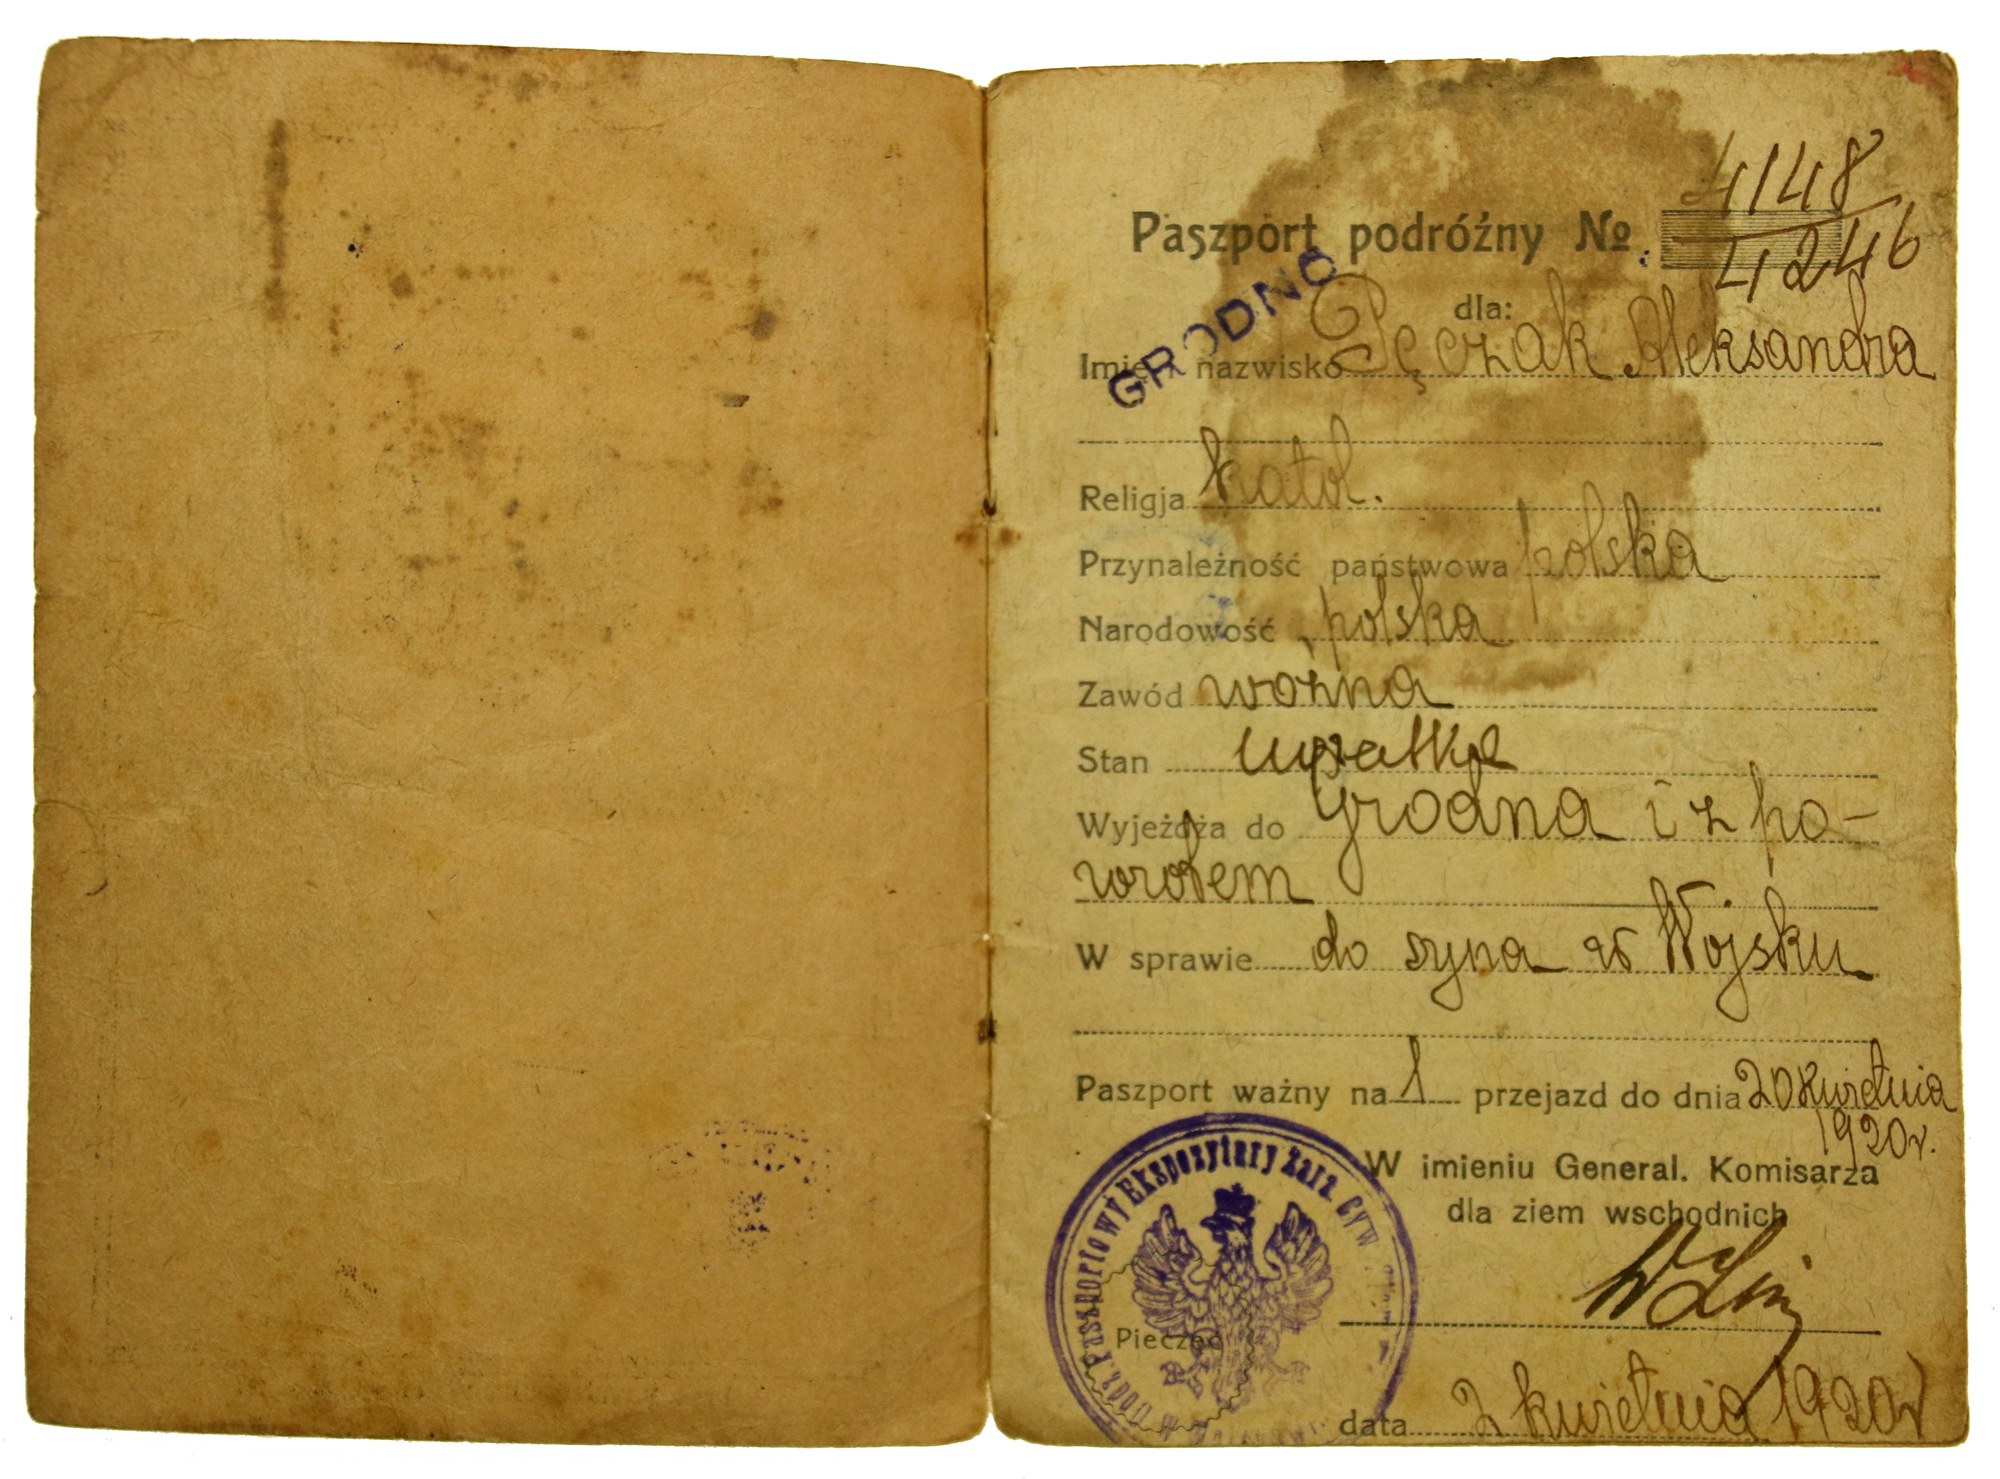 Paszport podróżny №
4148
4246
GRODNO
dla:
Imię i nazwisko Pęczak Aleksandra
Religja katol.
Przynależność państwowa polska
Narodowość polska
Zawód woźna
Stan mężatka
Wyjeżdża do Grodna i z po-
wrotem
W sprawie do syna w Wojsku
Paszport ważny na 1 przejazd do dnia 20 kwietnia
1920 r.
W imieniu General. Komisarza
dla ziem wschodnich
Paszportowy Ekspozytury Zarz. Cyw.
Pieczęć
data 2 kwietnia 1920 r